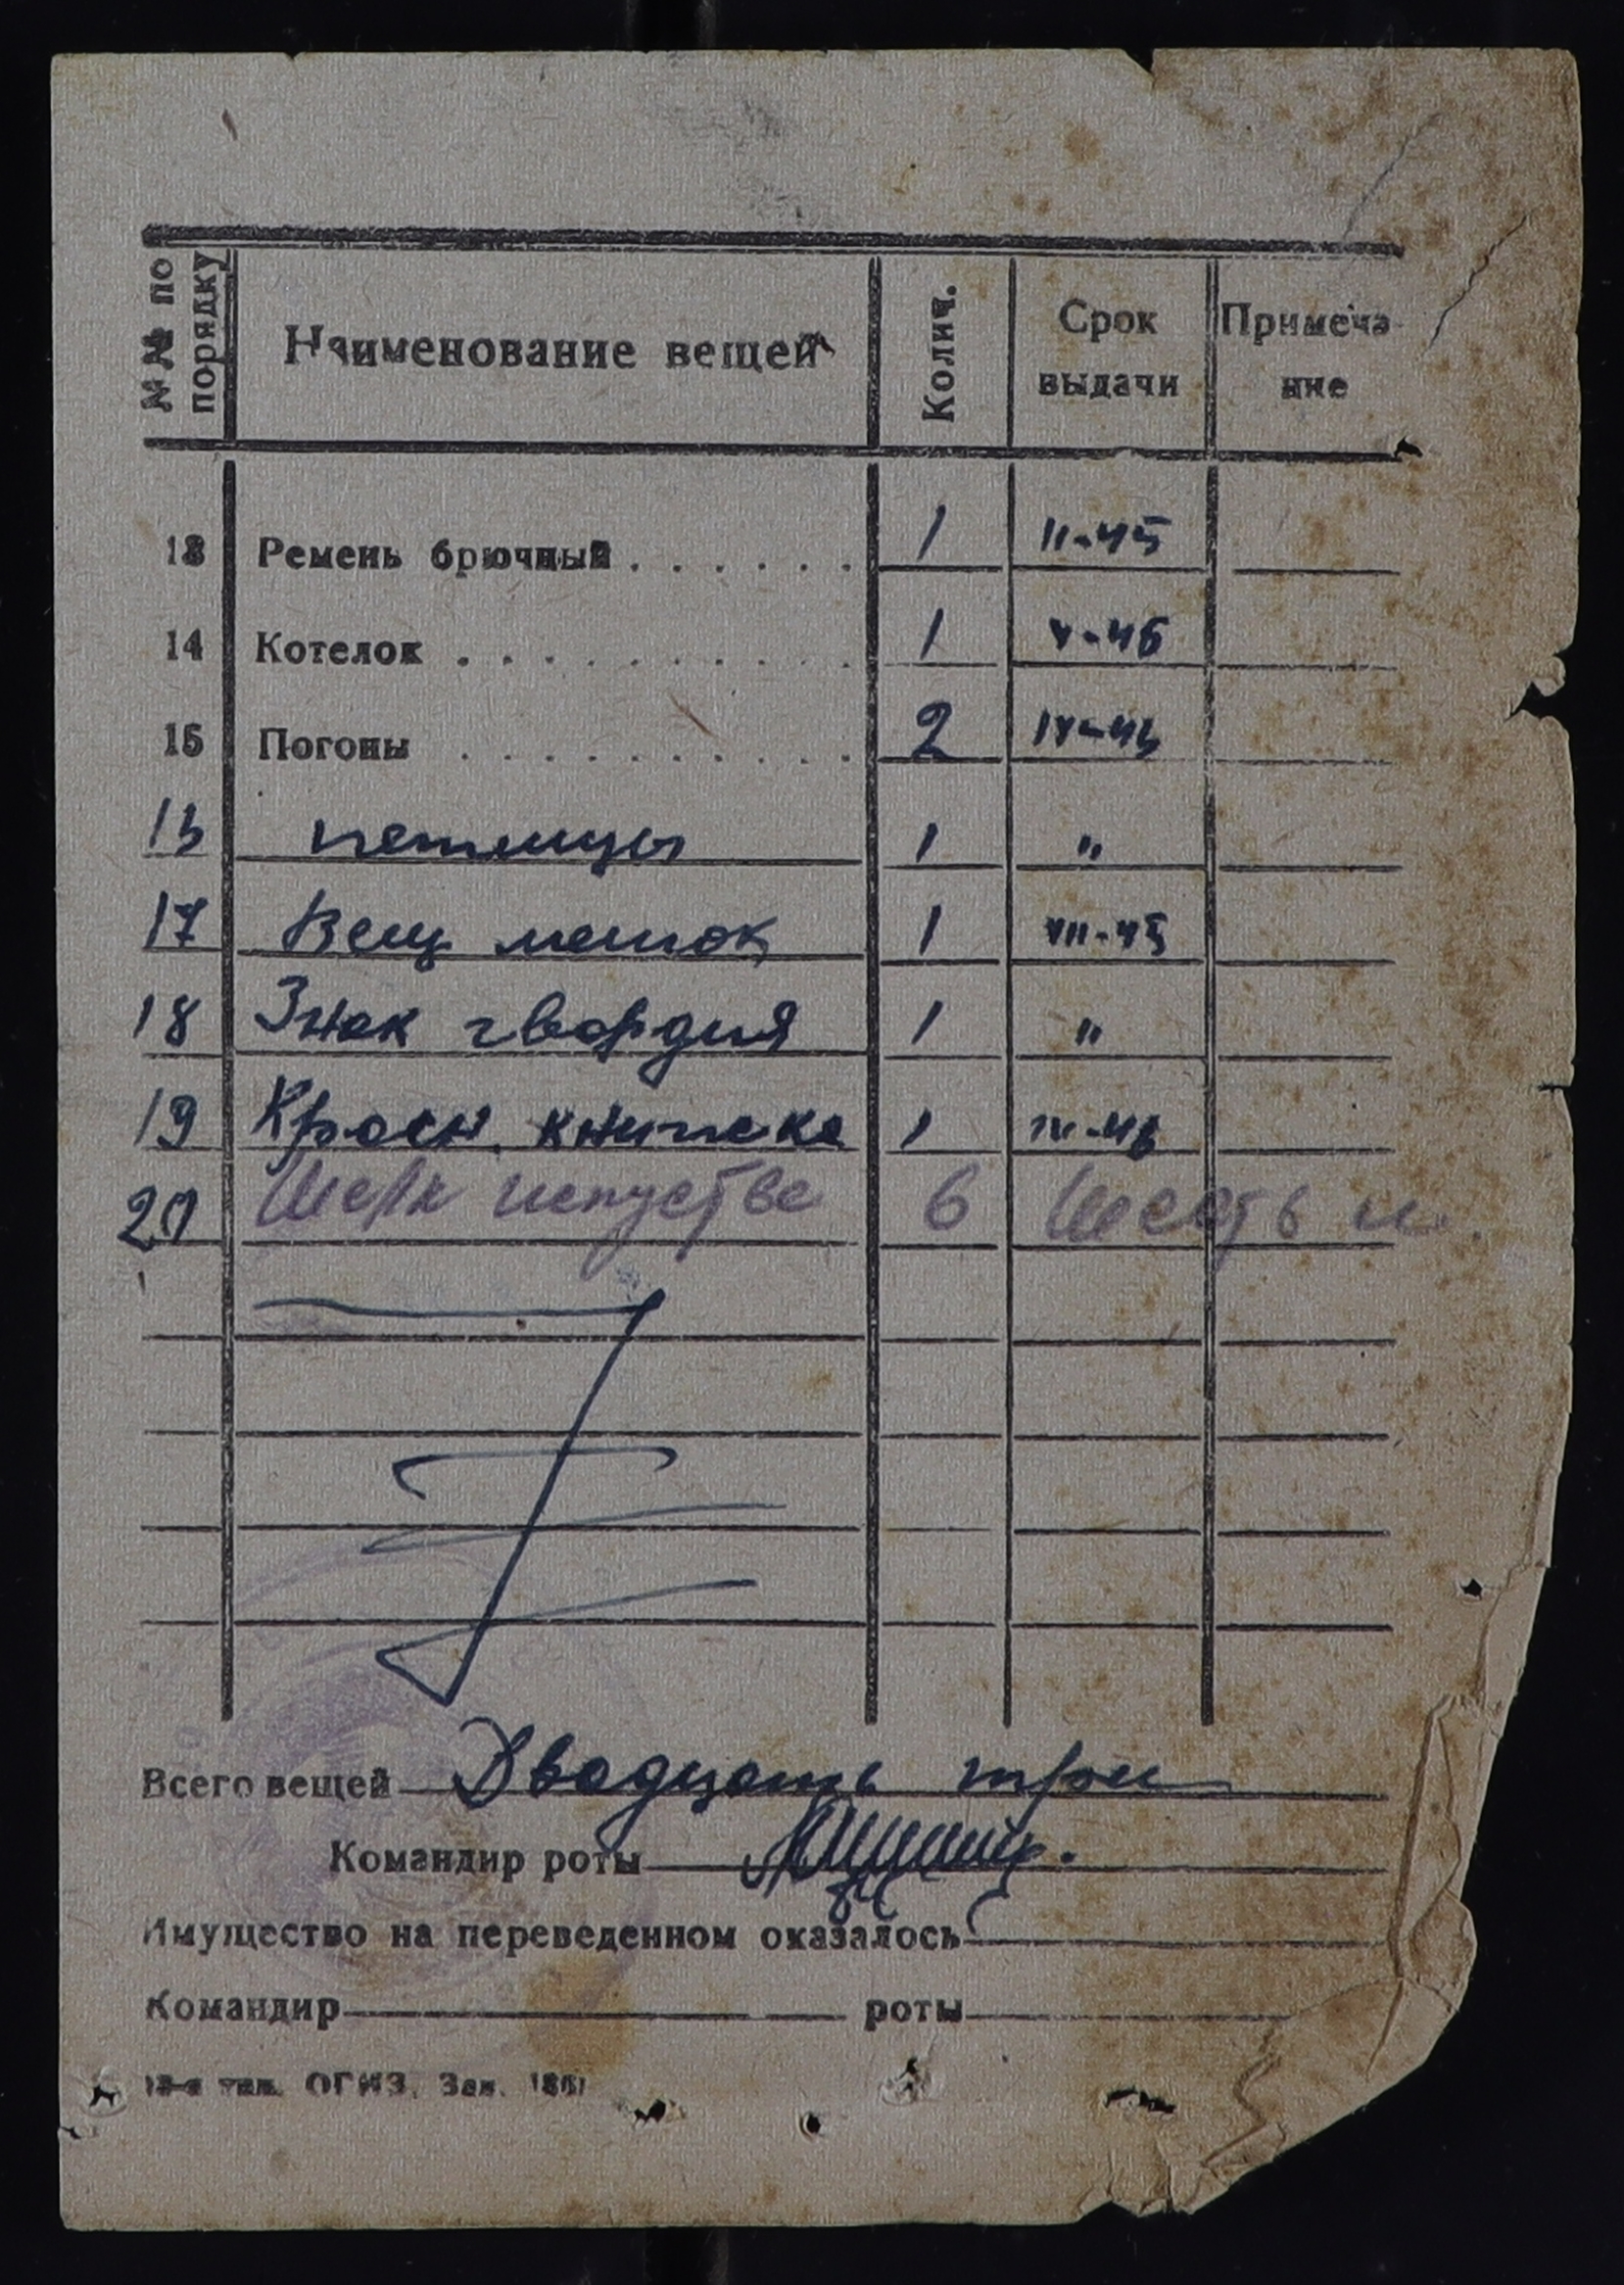 №№ по порядку Наименование вещей Колич. Срок выдачи Примеча-ние
13 Ремень брючный . . . . . . 1 II-45
14 Котелок . . . . . . . . . . 1 V-46
15 Погоны . . . . . . . . . . 2 IV-46
16 петлицы 1 "
17 Вещ мешок 1 VII-45
18 Знак гвардия 1 "
19 Красн. книжка 1 IV-46
20 Шелк искуства 6 Шесть м.
Всего вещей Двадцать три
Командир роты
Имущество на переведенном оказалось
Командир роты
13-я тип. ОГИЗ, Зак.